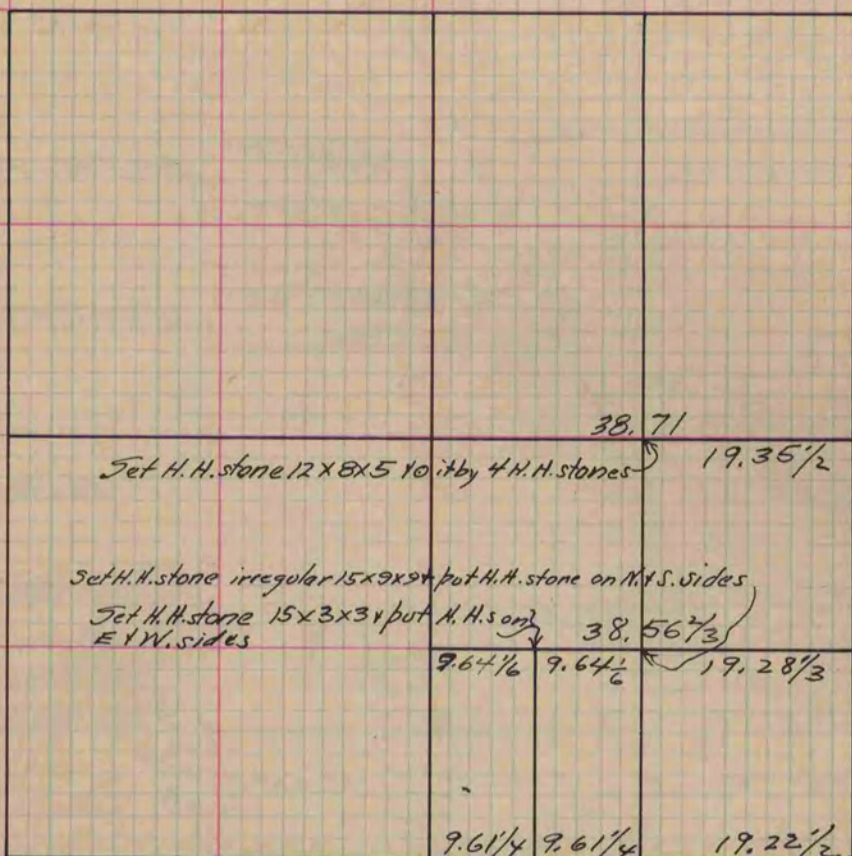 38.71
19.35 1/2
Set H.H. stone 12x8x5 & by 4 H.H. stones
Set H.H. stone irregular 15x9x9 & put H.H. stone on N. & S. sides
Set H.H. stone 15x3x3 & put H.H.s on
E & W. sides
38.56 2/3
9.64 1/6 9.64 1/6 19.28 1/3
9.61 1/4 9.61 1/4 19.22 1/2